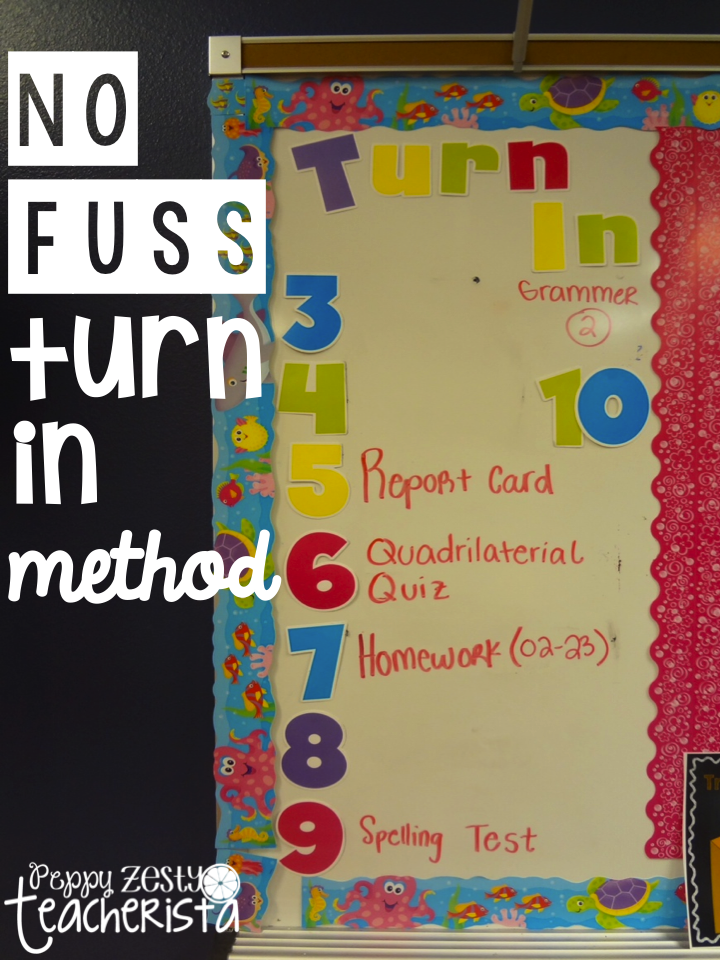 NO
FUSS
turn
in
method
Turn
In
Grammer
2
3
4
10
5 Report Card
6 Quadrilaterial
Quiz
7 Homework (02-23)
8
9 Spelling Test
Peppy Zesty
Teacherista